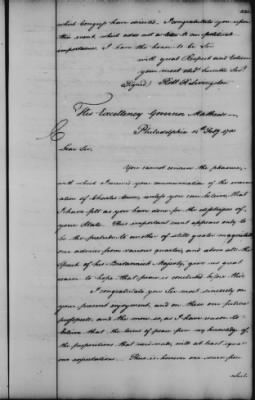 which Congress have directed. I congratulate you upon
this event, which adds not a little to our political
importance. I have the honor to be Sir
with great Respect and Esteem
your most obdt. humble Servt.
(Signed) Robt R Livingston
His Excellency Governor Mathews
Philadelphia 12th Feby 178
Dear Sir,
You cannot conceive the pleasure,
with which I received your communication of the evacu-
ation of Charles town, unless you can believe that
I have felt as you have done for the distresses of
your State. This important event appears only to
be the prelude to another of still greater magnitude
our advices from various quarters, and above all the
Speech of his Britannick Majesty, gives us great
reason to hope that peace is concluded before this.
I congratulate you Sir most sincerely on
your present enjoyment, and on these our future
prospects, and the more so, as I have reason to
believe that the terms of peace from my knowledge of
the propositions that were made, will at least equal
our expectations. There is however one